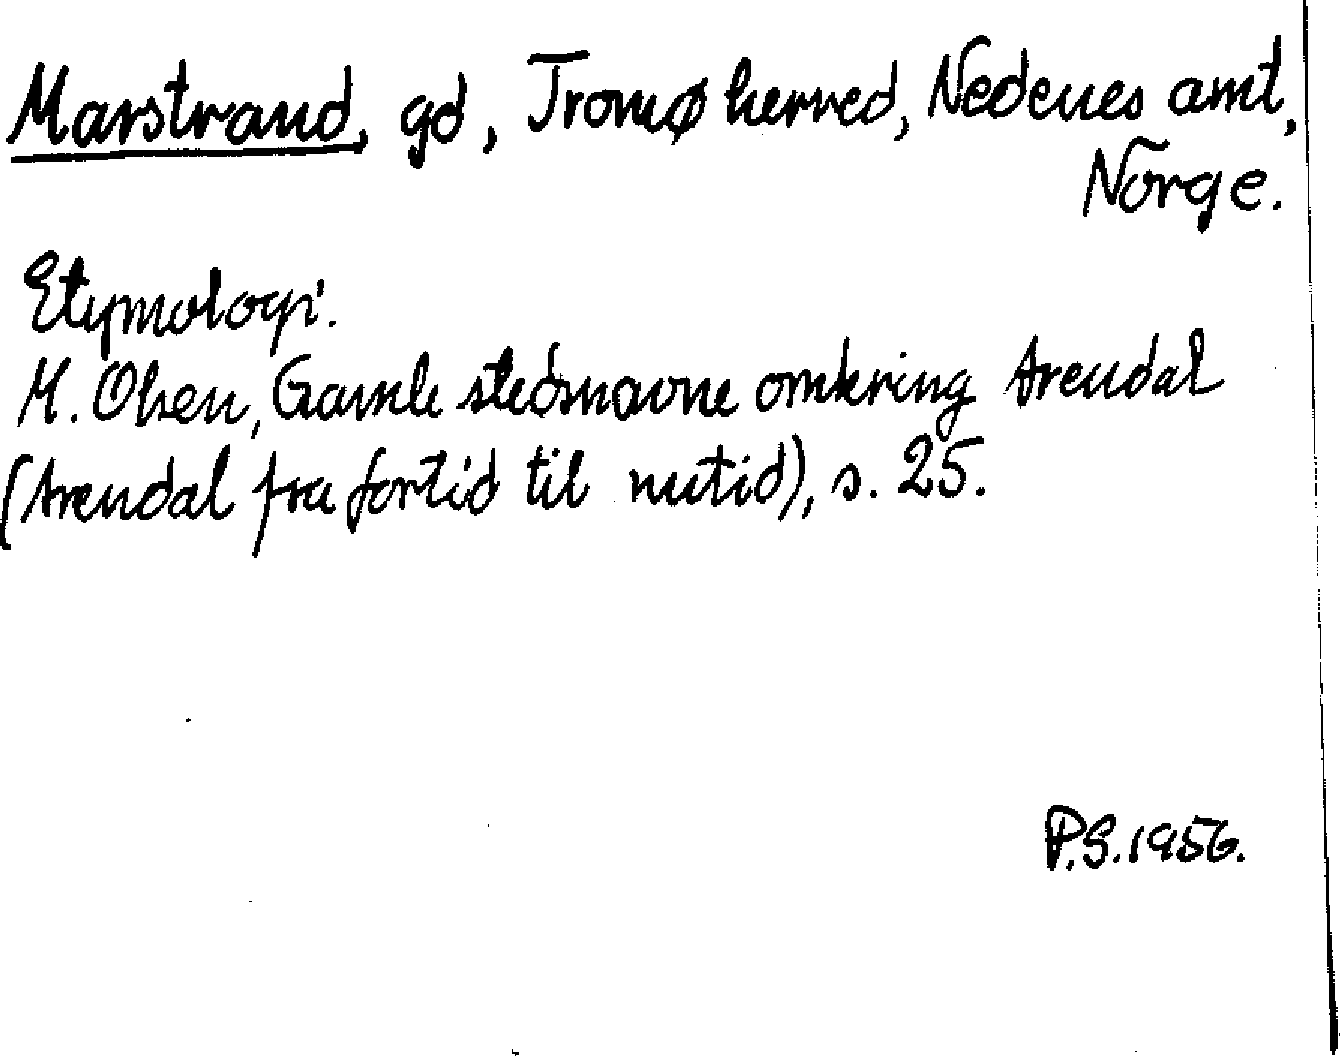 Marstrand, gd, Tromø herred, Nedenes amt,
Norge.
Etymologi.
M. Olsen, Gamle stedsnavne omkring Arendal
(Arendal fra fortid til nutid), s. 25.
P.S. 1956.